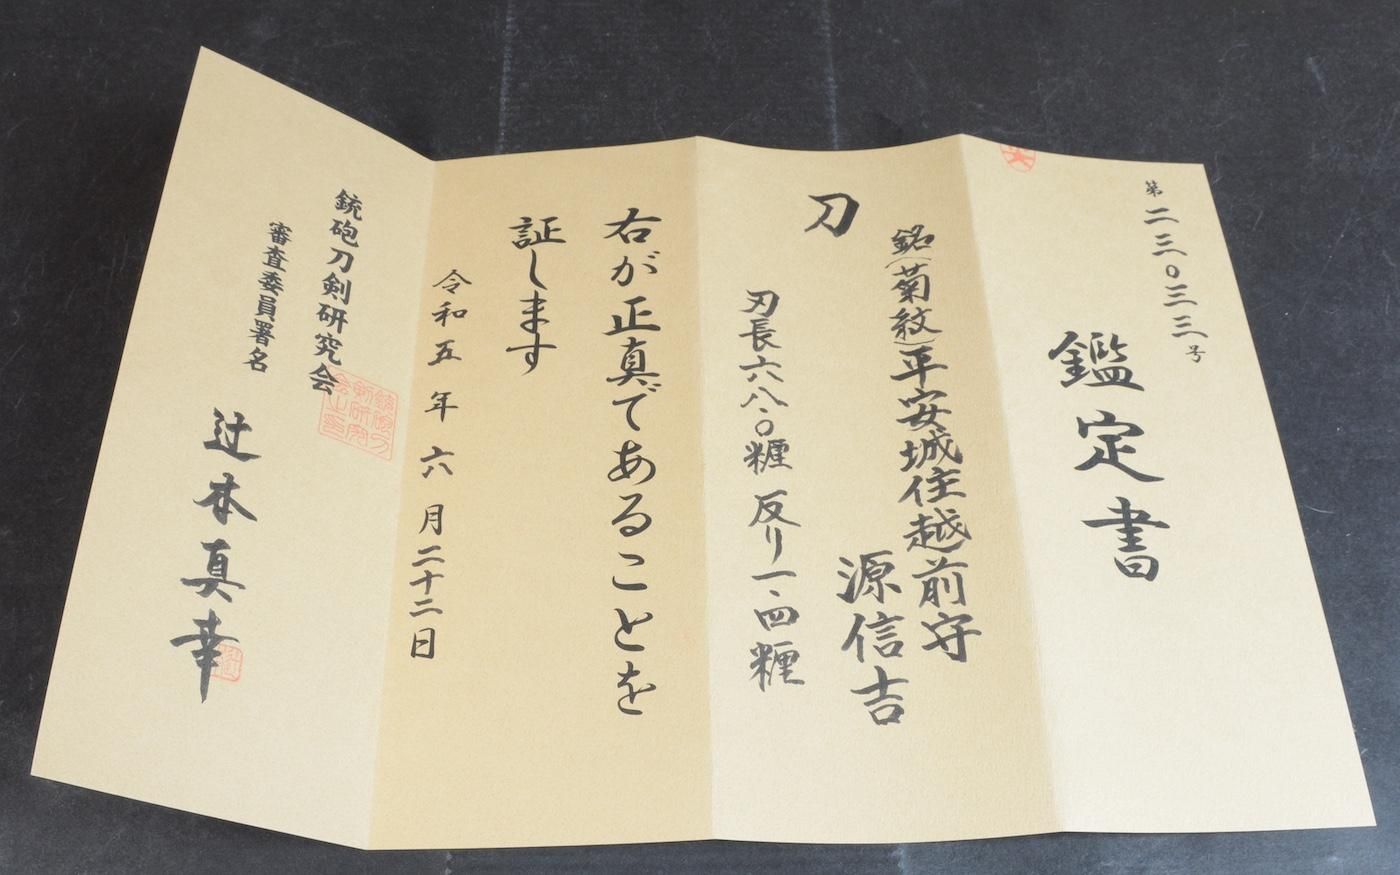 第二三〇三三号
鑑定書
銘(菊紋)平安城住越前守
源信吉
刀
刃長六八.〇糎 反り一.四糎
右が正真であることを
証します
令和五年六月二十二日
銃砲刀剣研究会
審査委員署名
辻本真幸